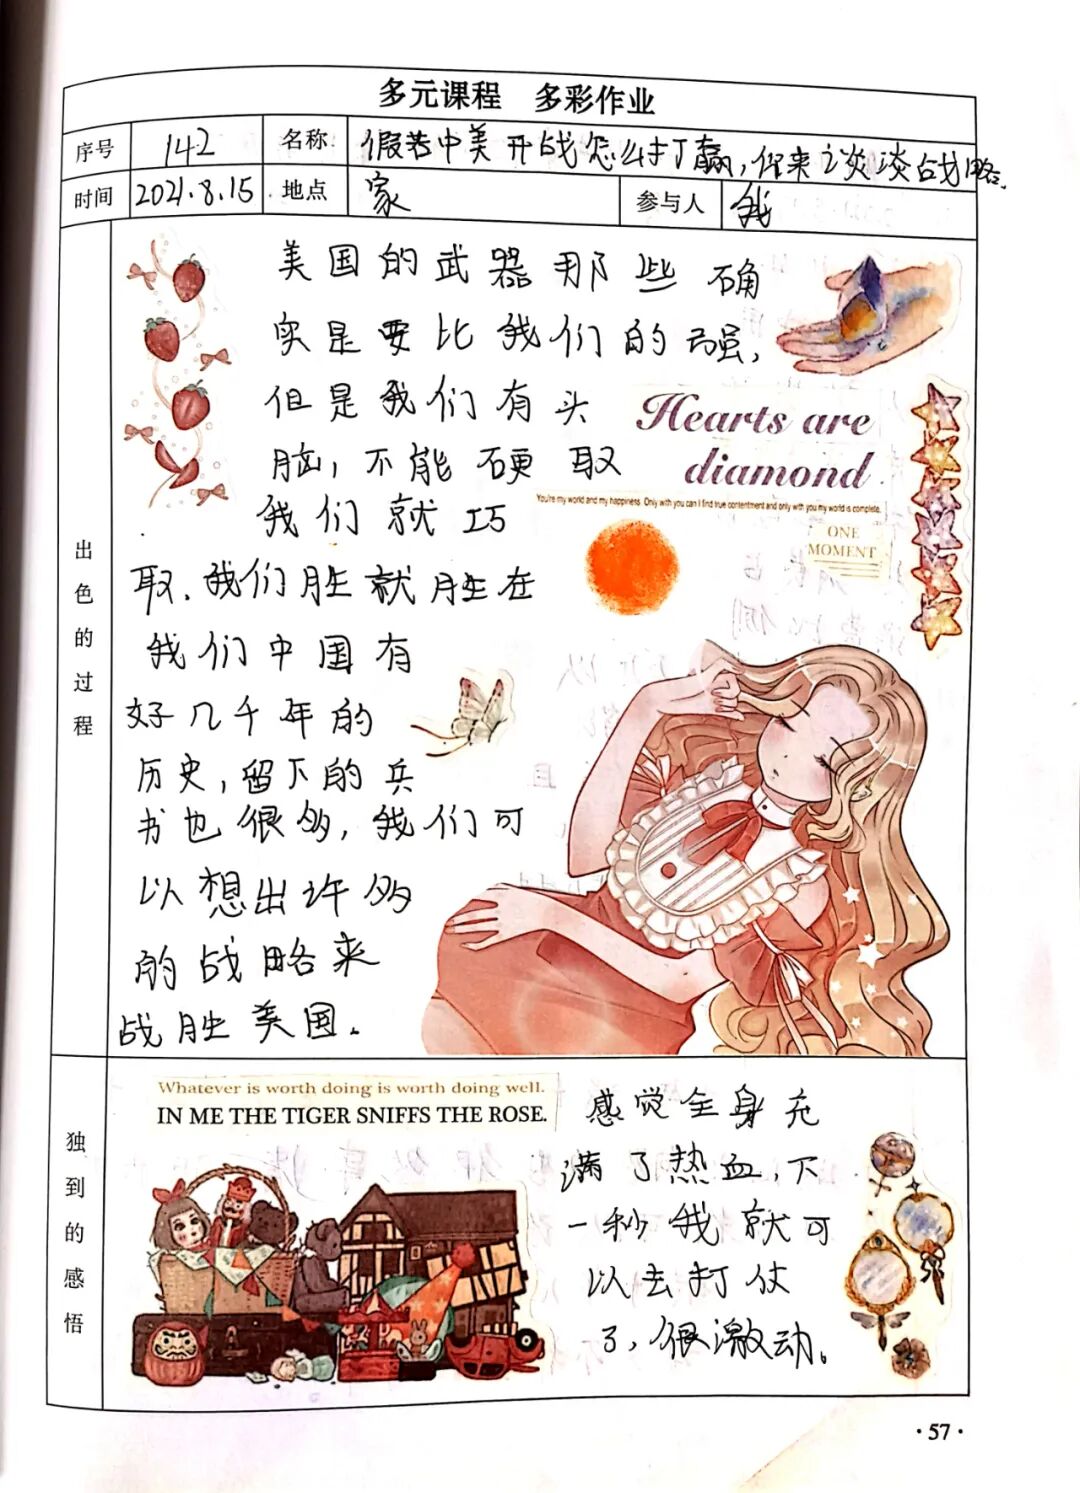 多元课程 多彩作业
序号 142 名称 假若中美开战怎么才打赢，你来谈谈战略。
时间 2021.8.15 地点 家 参与人 我
出色的过程
美国的武器那些确
实是要比我们的强，
但是我们有头
脑，不能硬取
我们就巧
取．我们胜就胜在
我们中国有
好几千年的
历史，留下的兵
书也很多，我们可
以想出许多
的战略来
战胜美国．
Hearts are
diamond
You're my world and my happiness. Only with you can I find true contentment and only with you my world is complete.
ONE
MOMENT
独到的感悟
Whatever is worth doing is worth doing well.
IN ME THE TIGER SNIFFS THE ROSE.
感觉全身充
满了热血，下
一秒我就可
以去打仗
了，很激动。
·57·